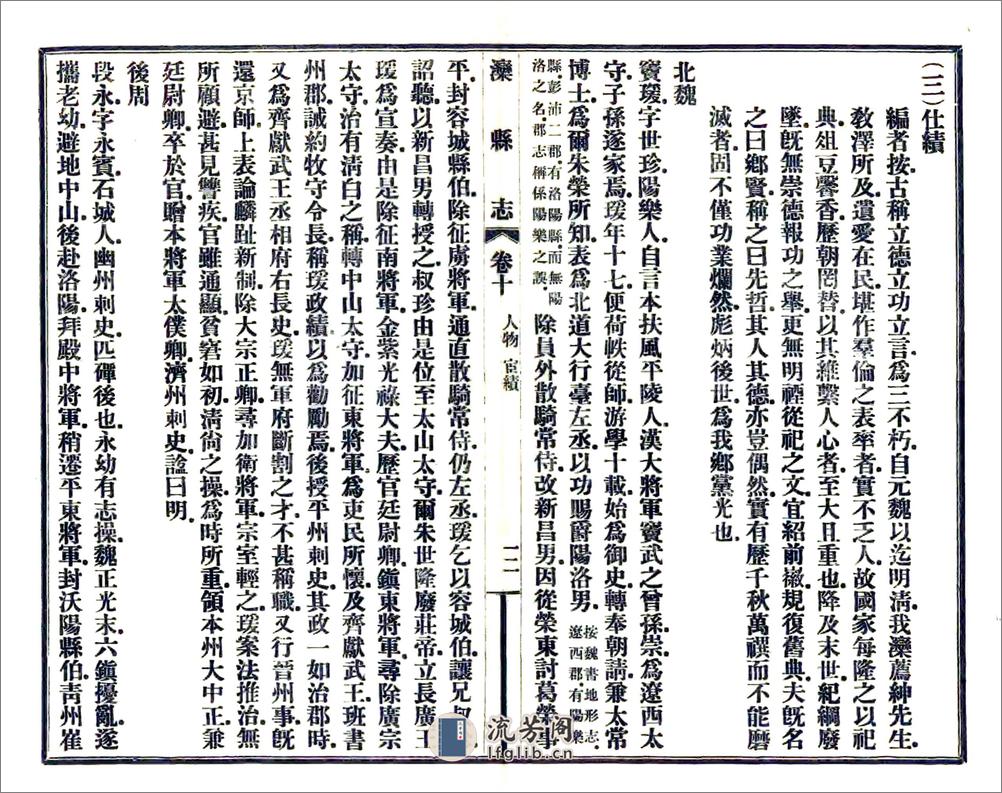 (三)仕績
編者按古稱立德立功立言為三不朽自元魏以迄明清我灤薦紳先生
敎澤所及遺愛在民堪作羣倫之表率者實不乏人故國家每隆之以祀
典俎豆馨香歷朝罔替以其維繫人心者至大且重也降及末世紀綱廢
墜旣無崇德報功之舉更無明禋從祀之文宜紹前徽規復舊典夫旣名
之曰鄕賢稱之曰先哲其人其德亦豈偶然實有歷千秋萬禩而不能磨
滅者固不僅功業爛然彪炳後世為我鄕黨光也
北魏
竇瑗字世珍陽樂人自言本扶風平陵人漢大將軍竇武之曾孫崇為遼西太
守子孫遂家焉瑗年十七便荷帙從師游學十載始為御史轉奉朝請兼太常
博士為爾朱榮所知表為北道大行臺左丞以功賜爵陽洛男按魏書地形志遼西郡有陽樂
縣彭沛二郡有洛陽縣而無陽洛之名郡志稱係陽樂之誤除員外散騎常侍改新昌男因從榮東討葛榮事
灤縣志 卷十 人物 宦績 一二
平封容城縣伯除征虜將軍通直散騎常侍仍左丞瑗乞以容城伯讓兄叔珍
詔聽以新昌男轉授之叔珍由是位至太山太守爾朱世隆廢莊帝立長廣王
瑗為宣奏由是除征南將軍金紫光祿大夫歷官廷尉卿鎭東將軍尋除廣宗
太守治有淸白之稱轉中山太守加征東將軍為吏民所懷及齊獻武王班書
州郡誡約牧守令長稱瑗政績以為勸勵焉後授平州刺史其政一如治郡時
又為齊獻武王丞相府右長史瑗無軍府斷割之才不甚稱職又行晉州事旣
還京師上表論麟趾新制除大宗正卿尋加衛將軍宗室輕之瑗案法推治無
所顧避甚見讐疾官雖通顯貧窘如初淸尙之操為時所重領本州大中正兼
廷尉卿卒於官贈本將軍太僕卿濟州刺史諡曰明
後周
段永字永賓石城人幽州刺史匹磾後也永幼有志操魏正光末六鎭擾亂遂
攜老幼避地中山後赴洛陽拜殿中將軍稍遷平東將軍封沃陽縣伯靑州崔
流芳阁
lfglib.cn